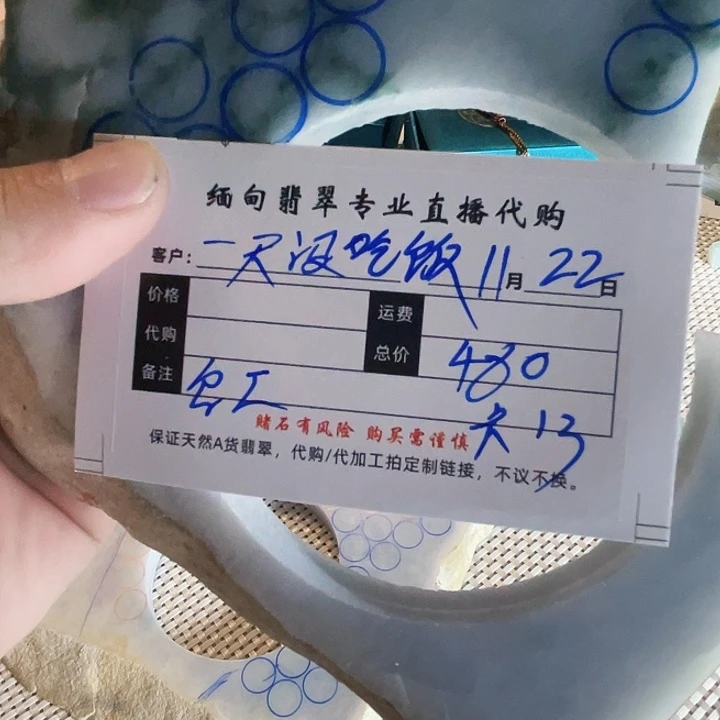 缅甸翡翠专业直播代购
客户：一天没吃饭 11月22日
价格 运费
代购 总价 480
备注 包工
赌石有风险 购买需谨慎
保证天然A货翡翠，代购/代加工拍定制链接，不议不换。